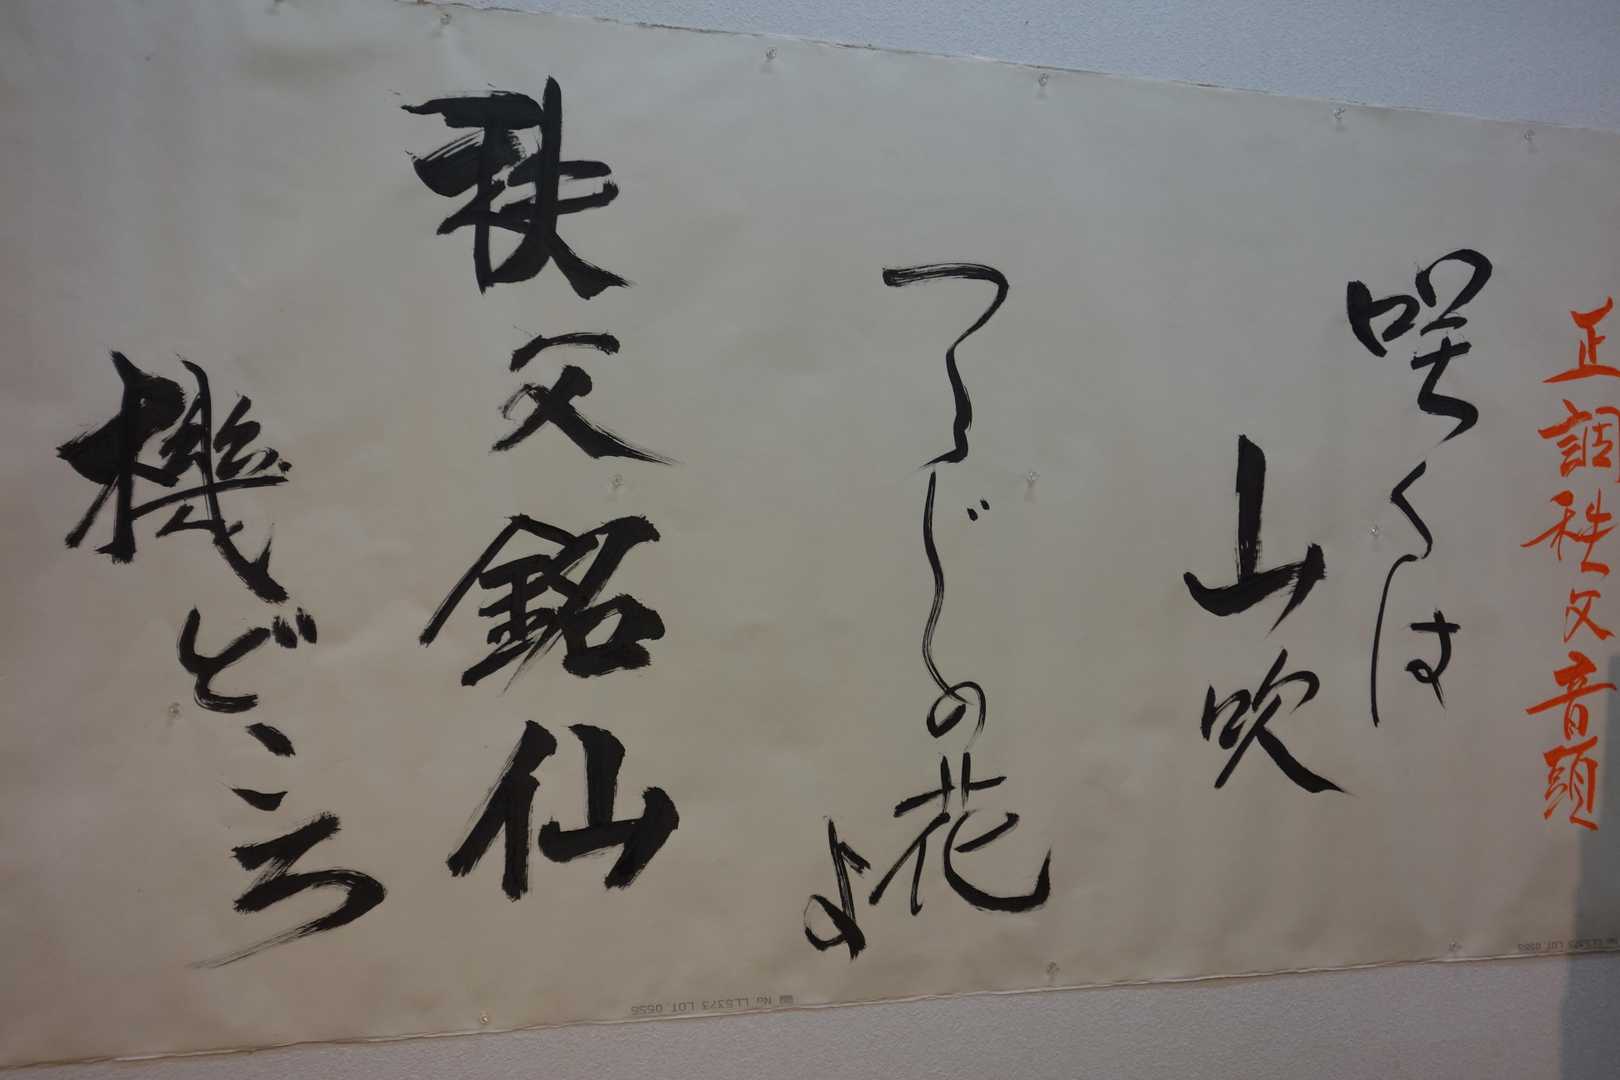 正調秩父音頭
咲くは
山吹
つゝじの花
よ
秩父銘仙
機どころ
No LL5373 LOT. 0556